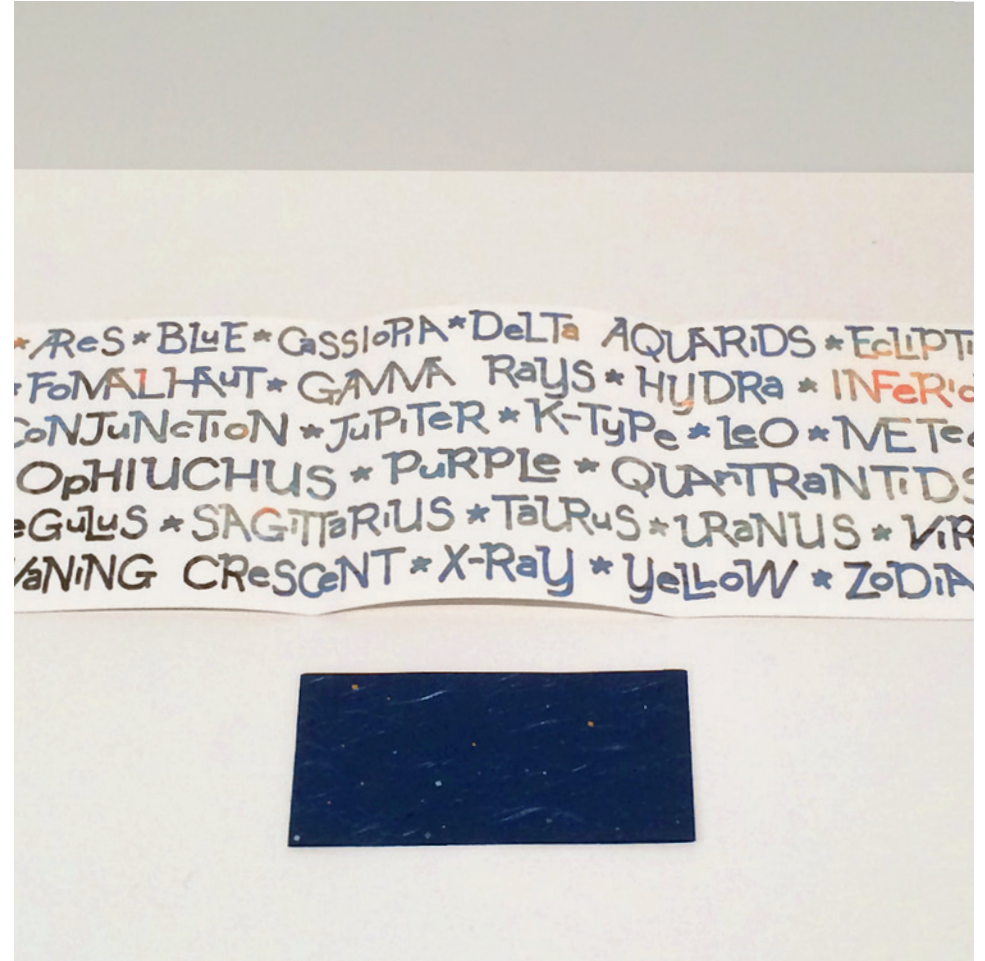 * AReS * BLuE * CassIoPiA * DeLTa AQUARiDS * EcLIPTi
* FoMALHAuT * GAMMA RaYS * HYDRa * INFeRio
CoNJuNcTioN * JuPiTeR * K-TyPe * LeO * METeo
OpHIUCHUS * PuRPLe * QUAnTRaNTiDS
eGuLuS * SAGiTTaRiUS * TaURuS * URaNUS * ViR
WaNiNG CReSCeNT * X-RaY * YeLLoW * ZoDiA